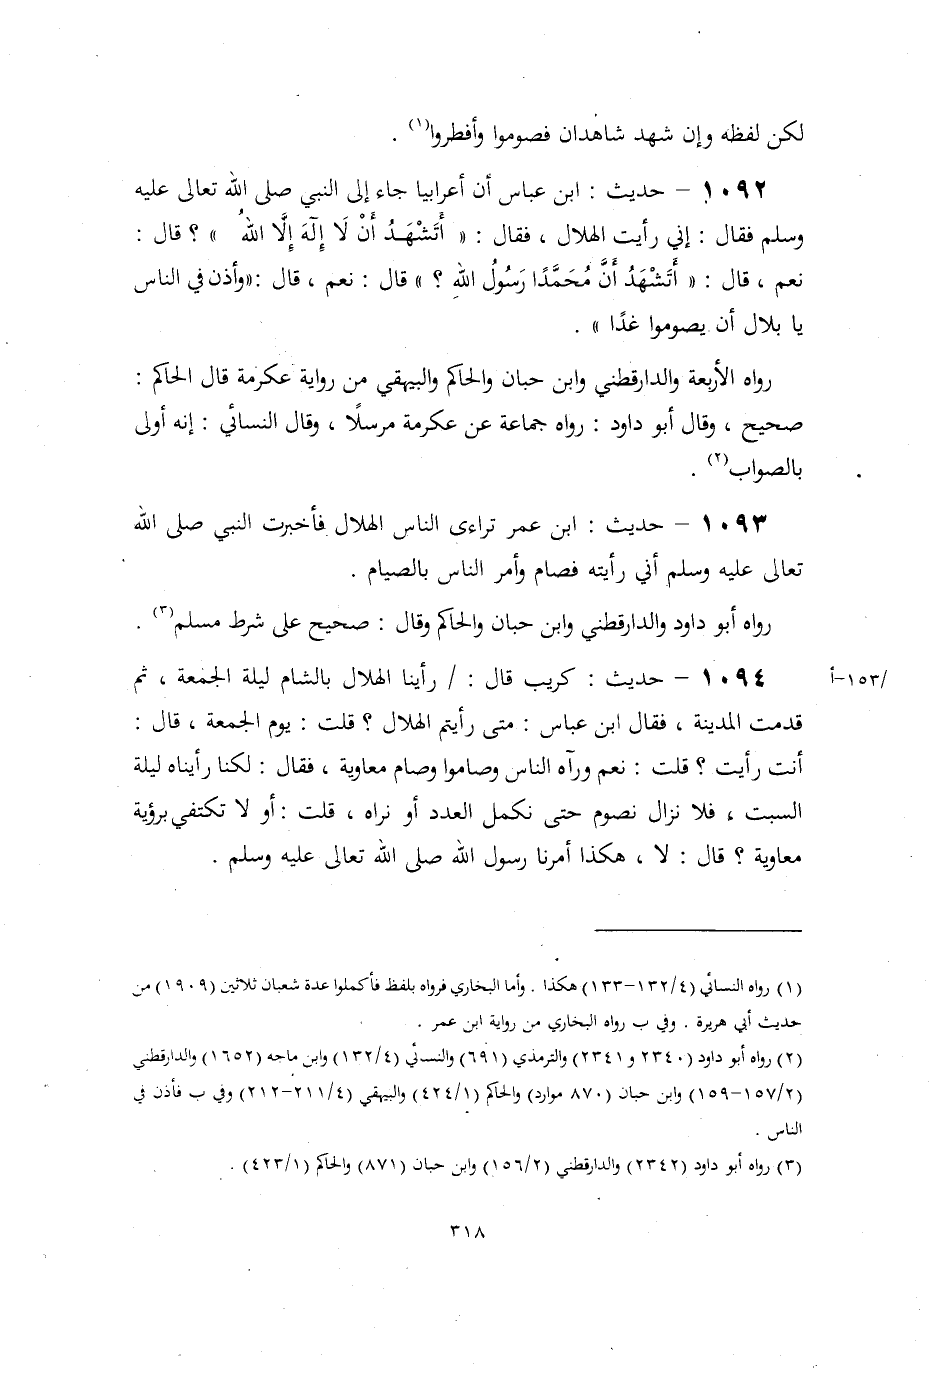 لكن لفظه وإن شهد شاهدان فصوموا وأفطروا(١) .
١٠٩٢ – حديث : ابن عباس أن أعرابيا جاء إلى النبي صلى الله تعالى عليه
وسلم فقال : إني رأيت الهلال ، فقال : « أَتَشْهَـدُ أَنْ لَا إِلَهَ إِلَّا اللهُ » ؟ قال :
نعم ، قال : « أَتَشْهَدُ أَنَّ مُحَمَّدًا رَسُولُ اللهِ ؟ » قال : نعم ، قال :«وأذن في الناس
يا بلال أن يصوموا غدًا » .
رواه الأربعة والدارقطني وابن حبان والحاكم والبيهقي من رواية عكرمة قال الحاكم :
صحيح ، وقال أبو داود : رواه جماعة عن عكرمة مرسلًا ، وقال النسائي : إنه أولى
بالصواب(٢) .
١٠٩٣ – حديث : ابن عمر تراءى الناس الهلال فأخبرت النبي صلى الله
تعالى عليه وسلم أني رأيته فصام وأمر الناس بالصيام .
رواه أبو داود والدارقطني وابن حبان والحاكم وقال : صحيح على شرط مسلم(٣) .
١٠٩٤ – حديث : كريب قال : / رأينا الهلال بالشام ليلة الجمعة ، ثم
/١٥٣–أ
قدمت المدينة ، فقال ابن عباس : متى رأيتم الهلال ؟ قلت : يوم الجمعة ، قال :
أنت رأيت ؟ قلت : نعم ورآه الناس وصاموا وصام معاوية ، فقال : لكنا رأيناه ليلة
السبت ، فلا نزال نصوم حتى نكمل العدد أو نراه ، قلت : أو لا تكتفي برؤية
معاوية ؟ قال : لا ، هكذا أمرنا رسول الله صلى الله تعالى عليه وسلم .
(١) رواه النسائي (١٣٢/٤–١٣٣) هكذا . وأما البخاري فرواه بلفظ فأكملوا عدة شعبان ثلاثين (١٩٠٩) من
حديث أبي هريرة . وفي ب رواه البخاري من رواية ابن عمر .
(٢) رواه أبو داود (٢٣٤٠ و ٢٣٤١) والترمذي (٦٩١) والنسائي (١٣٢/٤) وابن ماجه (١٦٥٢) والدارقطني
(١٥٧/٢–١٥٩) وابن حبان (٨٧٠ موارد) والحاكم (٤٢٤/١) والبيهقي (٢١١/٤–٢١٢) وفي ب فأذن في
الناس .
(٣) رواه أبو داود (٢٣٤٢) والدارقطني (١٥٦/٢) وابن حبان (٨٧١) والحاكم (٤٢٣/١) .
٣١٨